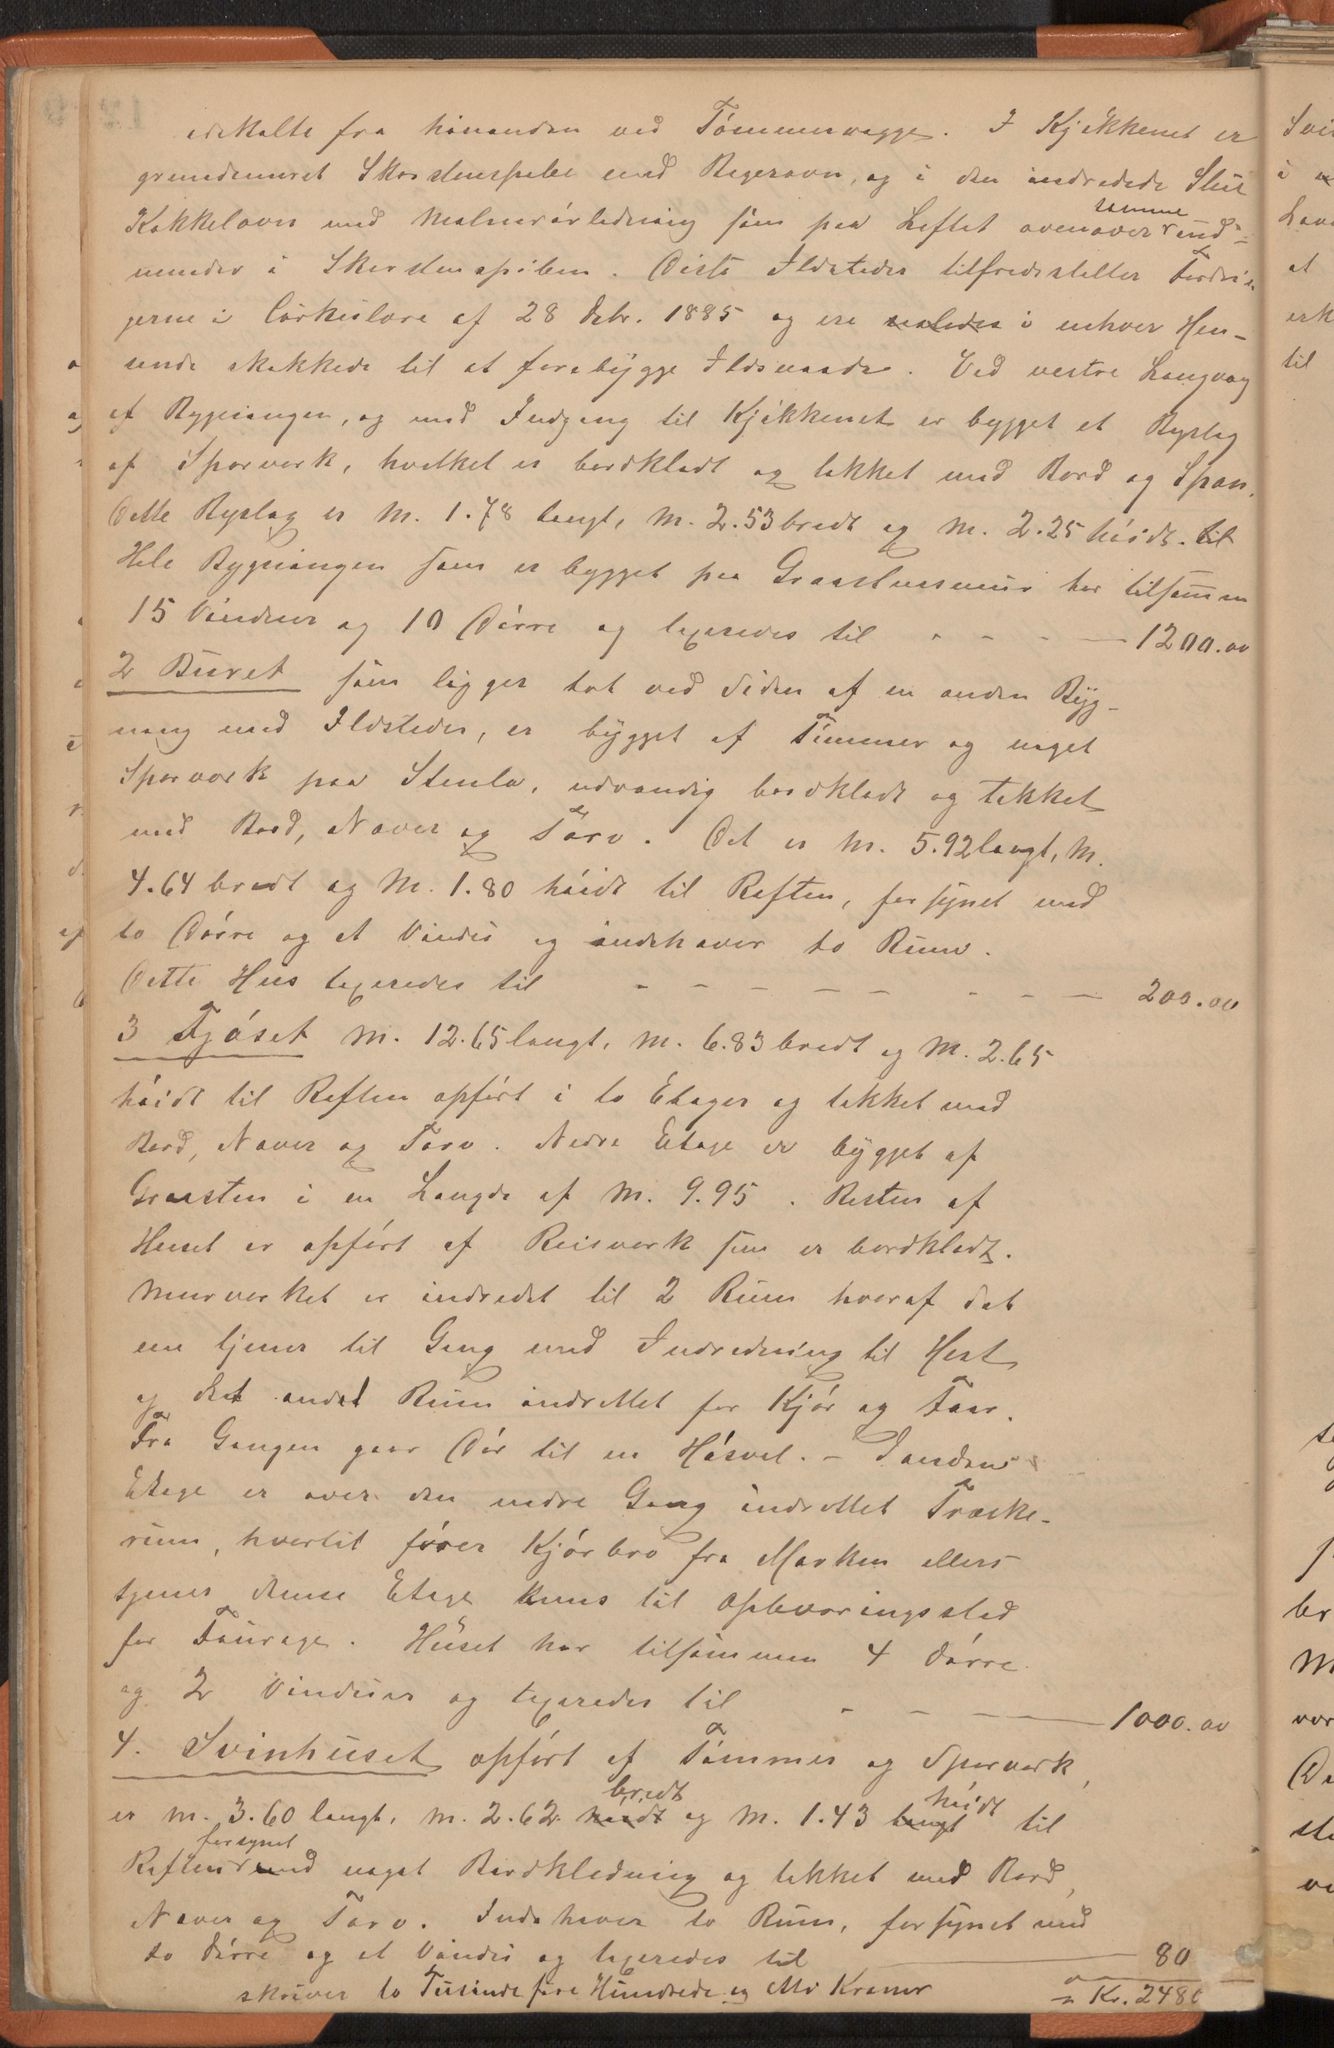 adskilte fra hinanden ved Tømmervægge. I Kjøkkenet er
grundmuret Skorstenspibe med Bagerovn, og i den indredede Stue
Kakkelovn med Malmrørledning som paa Loftet ovenover samme ind-
munder i Skorstenspiben. Disse Ildsteder tilfredsstiller Fordrin-
gerne i Cirkulære af 28 Debr. 1885 og ere saaledes i enhver Hen-
seende skikkede til at forebygge Ildsvaade. Ved vestre Langvæg
af Bygningen, og med Indgang til Kjøkkenet er bygget et Byslag
af Sporværk, hvilket er bordklædt og tækket med Bord og Spon.
Dette Byslag er M. 1.78 langt, M. 2.53 bredt og M. 2.25 høidt. til
Hele Bygningen som er bygget paa Graastensmur har tilsammen
15 Vinduer og 10 Dørre og taxeredes til - - - — 1200.00
2 Buret som ligger tæt ved Siden af en anden Byg-
ning med Ildsteder, er bygget af Tømmer og noget
Sporværk paa Stenla, udvændig bordklædt og tækket
med Bord, Næver og Tørv. Det er M. 5.92 langt, M.
4.64 bredt og M. 1.80 høidt til Raften, forsynet med
to Dørre og et Vindu og indehaver to Rum.
Dette Hus taxeredes til - - - - - - - — 200.00
3 Fjøset M. 12.65 langt, M. 6.83 bredt og M. 2.65
høidt til Raften opført i to Etager og tækket med
Bord, Næver og Tørv. Nedre Etage er bygget af
Graasten i en Længde af M. 9.95. Resten af
Huset er opført af Reisværk som er bordklædt.
Murværket er indredet til 2 Rum hvoraf det
ene tjener til Gang med Indredning til Hest
og det andet Rum indrettet for Kjør og Faar.
Fra Gangen gaar Dør til en Høsvel. - I anden
Etage er over den nedre Gang indrettet Træske-
rum, hvortil fører Kjørbro fra Marken ellers
tjener denne Etage kuns til Opbevaringssted
for Fourage. Huset har tilsammen 4 Dørre
og 2 Vinduer og taxeredes til - - - — 1000.00
4. Svinhuset opført af Tømmer og Sporværk,
er M. 3.60 langt, M. 2.62 høidt bredt og M. 1.43 langt høidt til
Raften forsynet med noget Bordklædning og tækket med Bord,
Næver og Tørv. Indehaver to Rum, forsynet med
to Dørre og et Vindu og taxeredes til — 80
skriver to Tusinde fire Hundrede og otti Kroner Kr. 2480